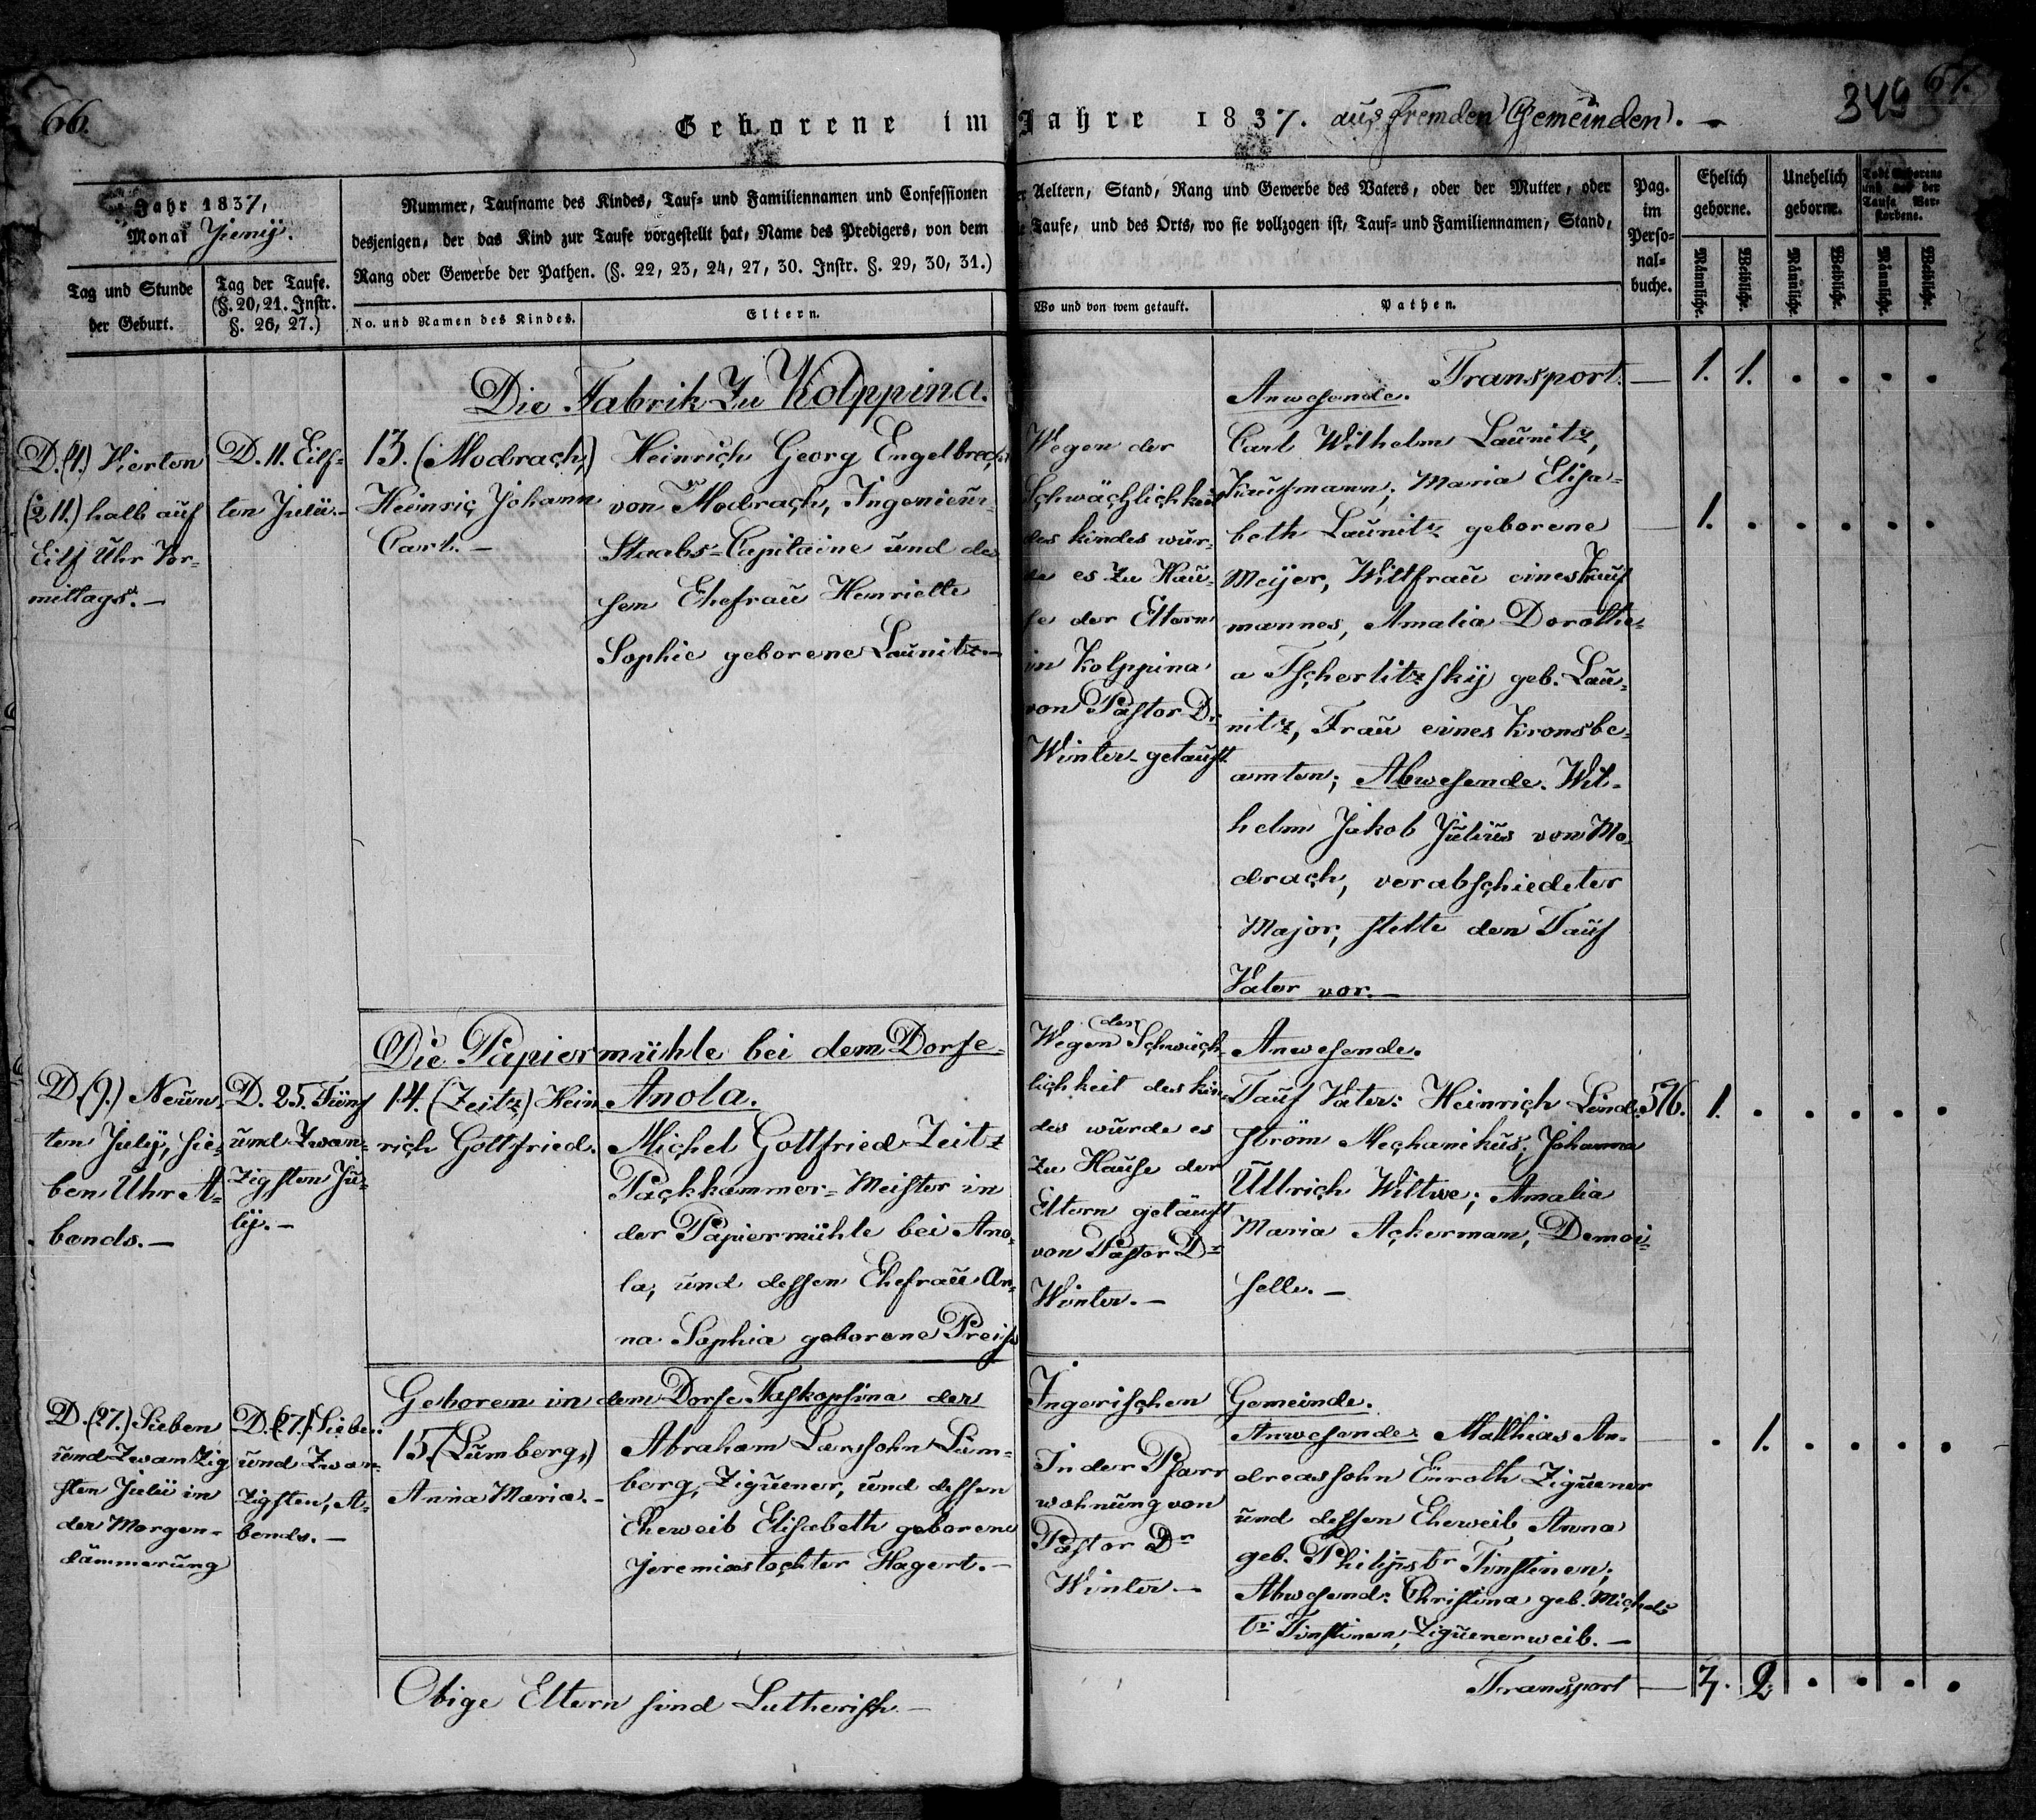 66.
Geborene im Jahre 1837. aus fremden Gemeinden. —
349
67.
Jahr 1837,
Monat Juny.
Tag und Stunde
der Geburt.
Tag der Taufe.
(§. 20, 21. Instr.
§. 26, 27.)
Nummer, Taufname des Kindes, Tauf- und Familiennamen und Confessionen der Aeltern, Stand, Rang und Gewerbe des Vaters, oder der Mutter, oder
desjenigen, der das Kind zur Taufe vorgestellt hat, Name des Predigers, von dem die Taufe, und des Orts, wo sie vollzogen ist, Tauf- und Familiennamen, Stand,
Rang oder Gewerbe der Pathen. (§. 22, 23, 24, 27, 30. Instr. §. 29, 30, 31.)
No. und Namen des Kindes.
Eltern.
Wo und von wem getauft.
Pathen.
Pag.
im
Perso-
nal-
buche.
Ehelich
geborne.
Unehelich
geborne.
Todt Geborene
und vor der
Taufe Ver-
storbene.
Männliche.
Weibliche.
Männliche.
Weibliche.
Männliche.
Weibliche.
Die Fabrik Zu Kolppina.
Transport. — 1. 1. . . . .
D. (4.) Vierten
(½ 11.) halb auf
Eilf Uhr Vor-
mittags. —
D. 11. Eilf-
ten Julü. —
13. (Modrach,)
Heinrich Johann
Carl. —
Heinrich Georg Engelbrecht
von Modrach, Ingenieur-
Staabs-Capitaine und des
sen Ehefrau Henriette
Sophie geborene Launitz. —
Wegen der
Schwächlichkeit
des Kindes wur-
de es Zu Hau-
se der Eltern
in Kolppina
von Pastor Dr
Winter getauft
Anwesende.
Carl Wilhelm Launitz,
Kaufmann; Maria Elisa-
beth Launitz geborene
Meijer, Wittfrau eines Kauf
mannes, Amalia Dorothe-
a Tschertitzskÿ geb. Lau-
nitz, Frau eines Kronsbe-
amten; Abwesende. Wil-
helm Jakob Julius von Mo-
drach, verabschiedeter
Major, stelte den Tauf
Vater vor. —
— 1. . . . . .
Die Papiermühle bei dem Dorfe
Anola.
D. (9.) Neun-
ten Julÿ, Sie-
ben Uhr A-
bends. —
D. 25. Fünf
und Zwan-
Zigsten Ju-
lÿ. —
14. (Zeitz) Hein
rich Gottfried.
Michel Gottfried Zeitz
Packkammer-Meister in
der Papiermühle bei Ano-
la, und dessen Ehefrau An-
na Sophia geborene Preiss
Wegen der Schwäch-
lichkeit des Kin-
des wurde es
Zu Hause der
Eltern getauft
von Pastor Dr
Winter. —
Anwesende.
Tauf Vater: Heinrich Lind-
ström Mechanikus; Johanna
Ullrich Wittwe; Amalia
Maria Ackerman, Demoi-
selle. —
576. 1. . . . . .
Geboren in dem Dorfe Taskopsina der Ingerischen Gemeinde.
D. (27.) Sieben
und Zwanzig
sten Julü in
der Morgen-
dämmerung
D. (27.) Sieben
und Zwan-
Zigsten, A-
bends. —
15. (Lumberg,)
Anna Maria. —
Abraham Larssohn Lum-
berg, Ziguener, und dessen
Eheweib Elisabeth geborene
Jeremiastochter Hagert. —
In der Pfarr
wohnung von
Pastor Dr
Winter —
Anwesende: Matthias An-
dreassohn Enroth Ziguener
und dessen Eheweib Anna
geb. Philipstr Finstinen;
Abwesend: Christina geb. Michels
tr Finstinen, Ziguenerweib. —
. 1. . . . .
Obige Eltern sind Lutherisch. —
Transport — 3. 2. . . . .